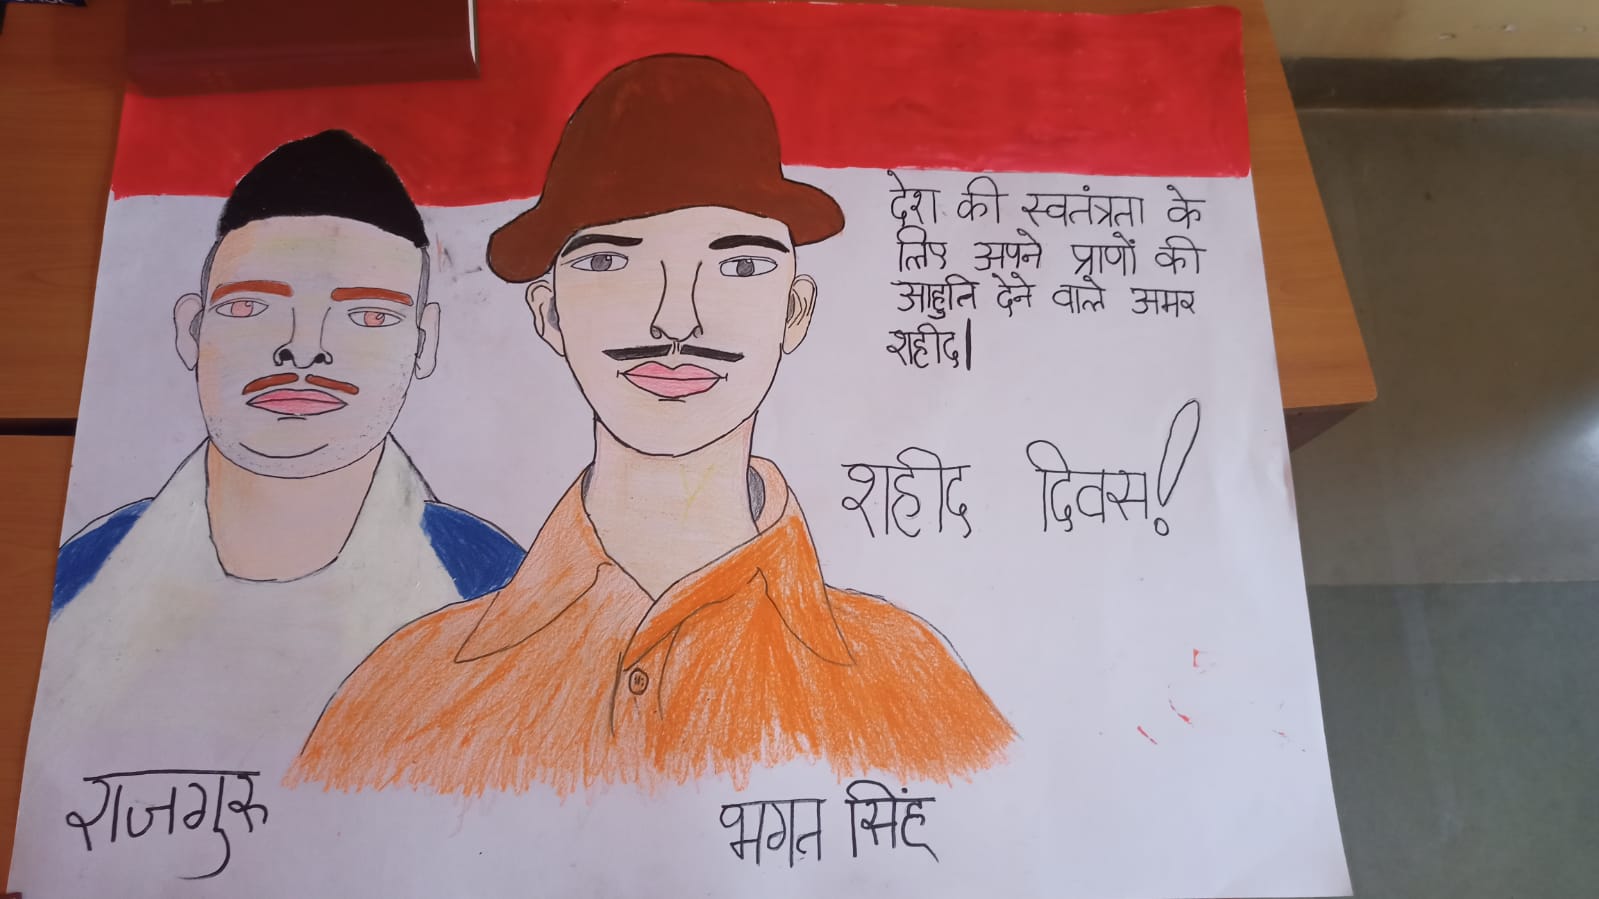 देश की स्वतंत्रता के
लिए अपने प्राणों की
आहुति देने वाले अमर
शहीद।
शहीद दिवस!
राजगुरु
भगत सिंह